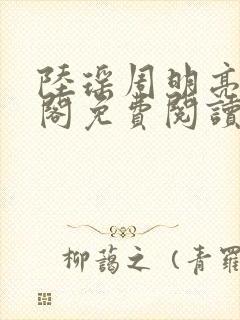 陸瑤周明亮
閣免費閱讀
柳藹之（青羅